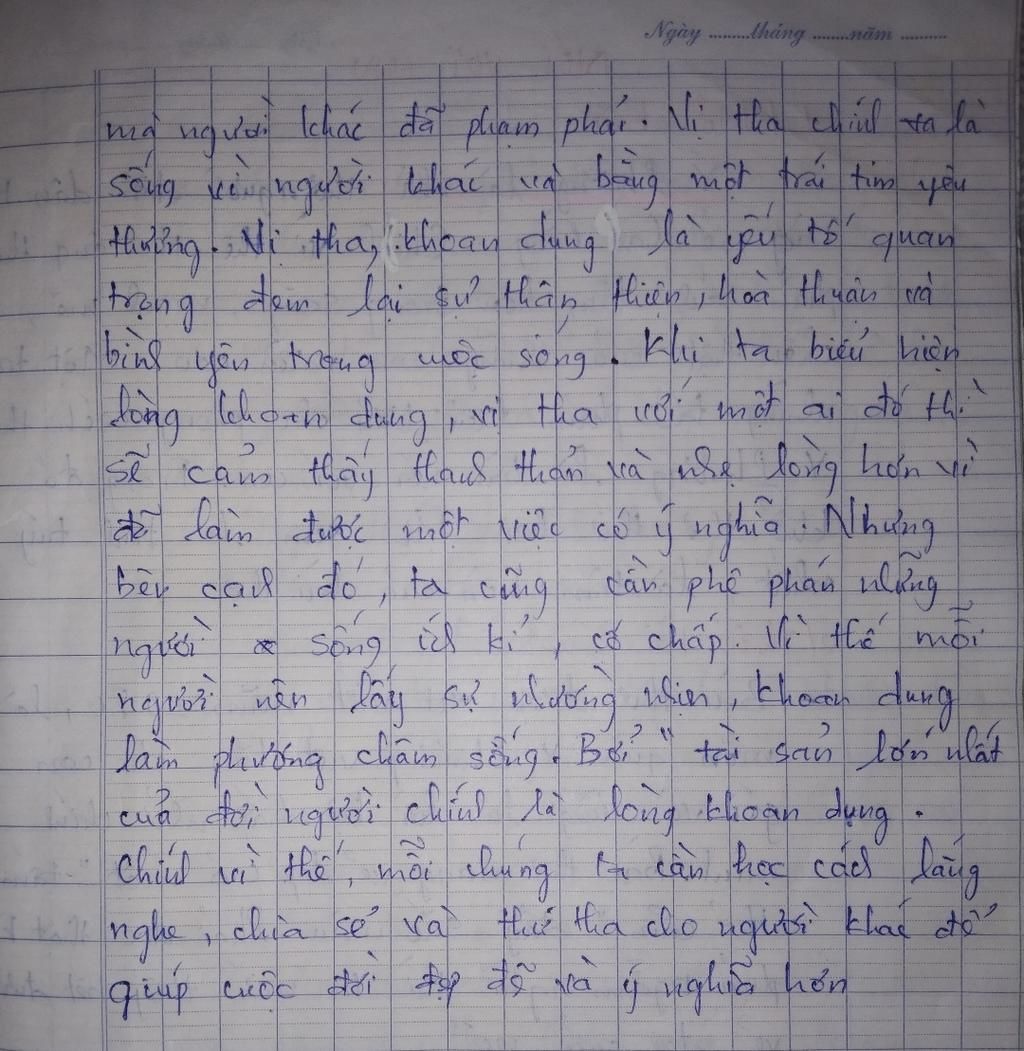 Ngày .........tháng ........năm ..........
mà người khác đã phạm phải. Vị tha chính ta là
sống vì người khác và bằng một trái tim yêu
thương. Vị tha, khoan dung là yếu tố quan
trọng đem lại sự thân thiện, hoà thuận và
bình yên trong cuộc sống. Khi ta biểu hiện
lòng khoan dung, vị tha với một ai đó thì
sẽ cảm thấy thanh thản và nhẹ lòng hơn vì
đã làm được một việc có ý nghĩa. Nhưng
bên cạnh đó, ta cũng cần phê phán những
người sống ích kỉ, cố chấp. Vì thế mỗi
người nên lấy sự nhường nhịn, khoan dung
làm phương châm sống. Bởi "tài sản lớn nhất
của đời người chính là lòng khoan dung.
Chính vì thế, mỗi chúng ta cần học cách lắng
nghe, chia sẻ và thứ tha cho người khác để
giúp cuộc đời đẹp đẽ và ý nghĩa hơn